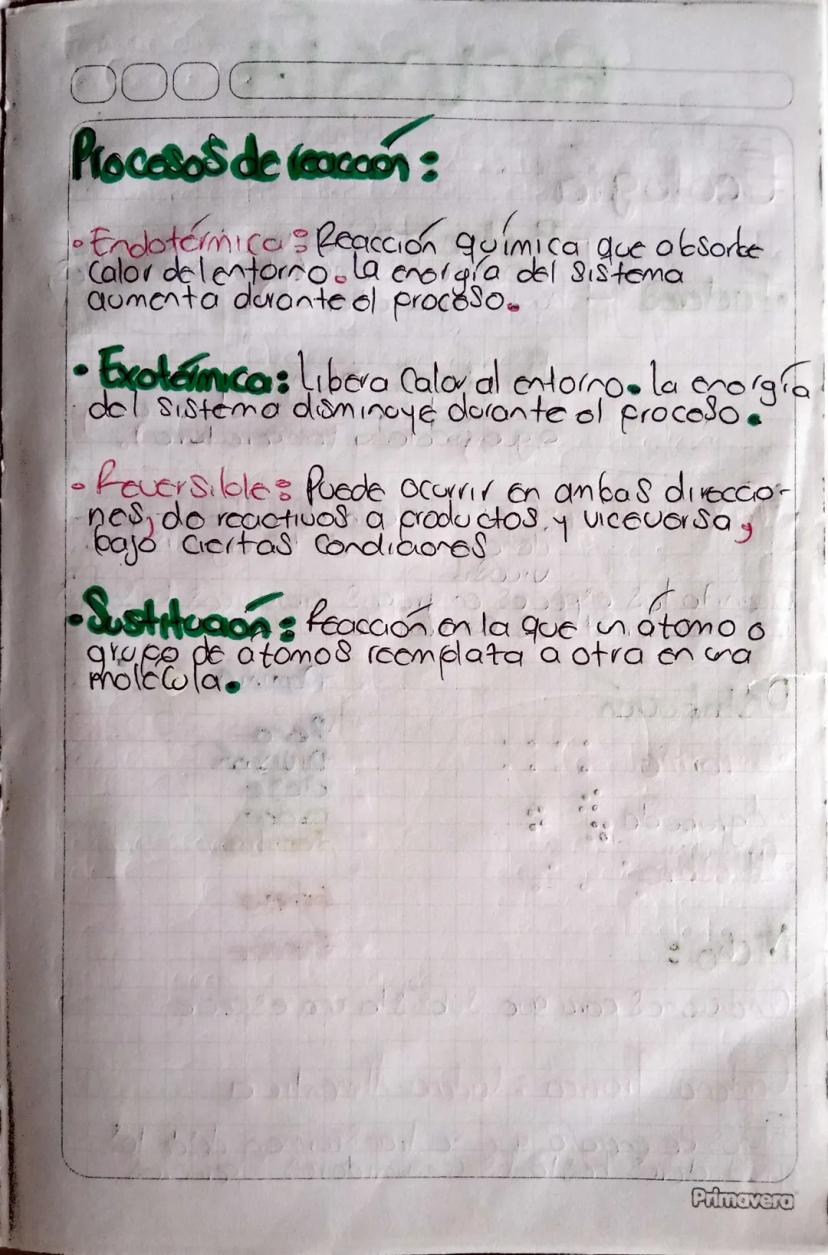 Procesos de reacción:
• Endotérmica: Reacción química que absorbe
calor del entorno. la energía del sistema
aumenta durante el proceso.
• Exotérmica: Libera Calor al entorno. la energía
del sistema disminuye durante el proceso.
• Reversible: Puede ocurrir en ambas direccio-
nes, de reactivos a productos y viceversa,
bajo ciertas condiciones
• Sustitución: Reacción en la que un átomo o
grupo de átomos reemplaza a otra en una
molécula.
Primavera